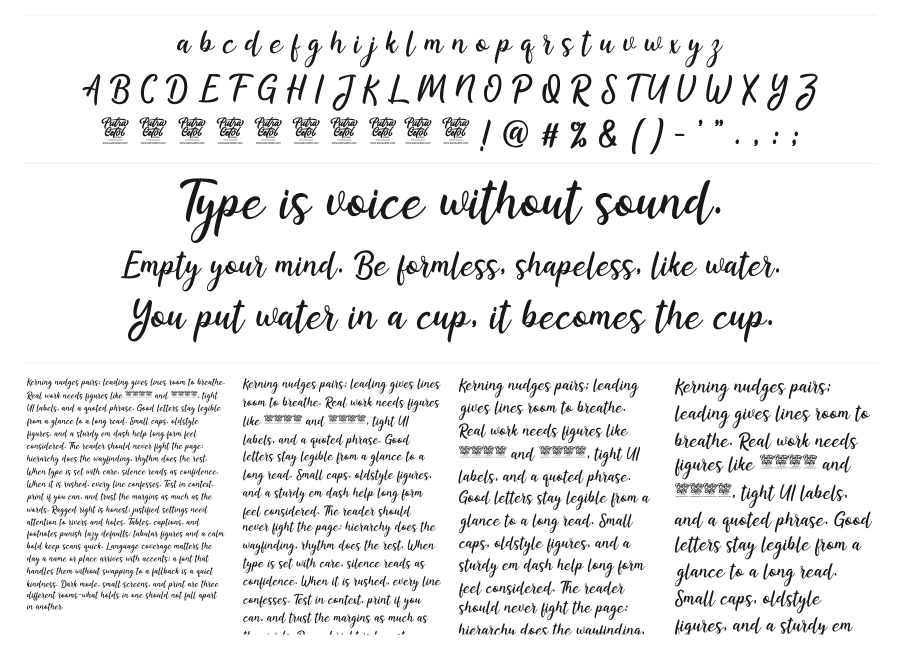 a b c d e f g h i j k l m n o p q r s t u v w x y z
A B C D E F G H I J K L M N O P Q R S T U V W X Y Z
Putra Cetol Putra Cetol Putra Cetol Putra Cetol Putra Cetol Putra Cetol Putra Cetol Putra Cetol Putra Cetol Putra Cetol ! @ # % & ( ) - ' " . , : ;
Type is voice without sound.
Empty your mind. Be formless, shapeless, like water.
You put water in a cup, it becomes the cup.
Kerning nudges pairs; leading gives lines room to breathe.
Real work needs figures like and , tight
UI labels, and a quoted phrase. Good letters stay legible
from a glance to a long read. Small caps, oldstyle
figures, and a sturdy em dash help long form feel
considered. The reader should never fight the page:
hierarchy does the wayfinding, rhythm does the rest.
When type is set with care, silence reads as confidence.
When it is rushed, every line confesses. Test in context,
print if you can, and trust the margins as much as the
words. Ragged right is honest; justified settings need
attention to rivers and holes. Tables, captions, and
footnotes punish lazy defaults; tabular figures and a calm
bold keep scans quick. Language coverage matters the
day a name or place arrives with accents; a font that
handles them without snapping to a fallback is a quiet
kindness. Dark mode, small screens, and print are three
different rooms-what holds in one should not fall apart
in another.
Kerning nudges pairs; leading gives lines
room to breathe. Real work needs figures
like and , tight UI
labels, and a quoted phrase. Good
letters stay legible from a glance to a
long read. Small caps, oldstyle figures,
and a sturdy em dash help long form
feel considered. The reader should
never fight the page: hierarchy does the
wayfinding, rhythm does the rest. When
type is set with care, silence reads as
confidence. When it is rushed, every line
confesses. Test in context, print if you
can, and trust the margins as much as
Kerning nudges pairs; leading
gives lines room to breathe.
Real work needs figures like
and , tight UI
labels, and a quoted phrase.
Good letters stay legible from a
glance to a long read. Small
caps, oldstyle figures, and a
sturdy em dash help long form
feel considered. The reader
should never fight the page:
hierarchy does the wayfinding,
Kerning nudges pairs;
leading gives lines room to
breathe. Real work needs
figures like and
, tight UI labels,
and a quoted phrase. Good
letters stay legible from a
glance to a long read.
Small caps, oldstyle
figures, and a sturdy em